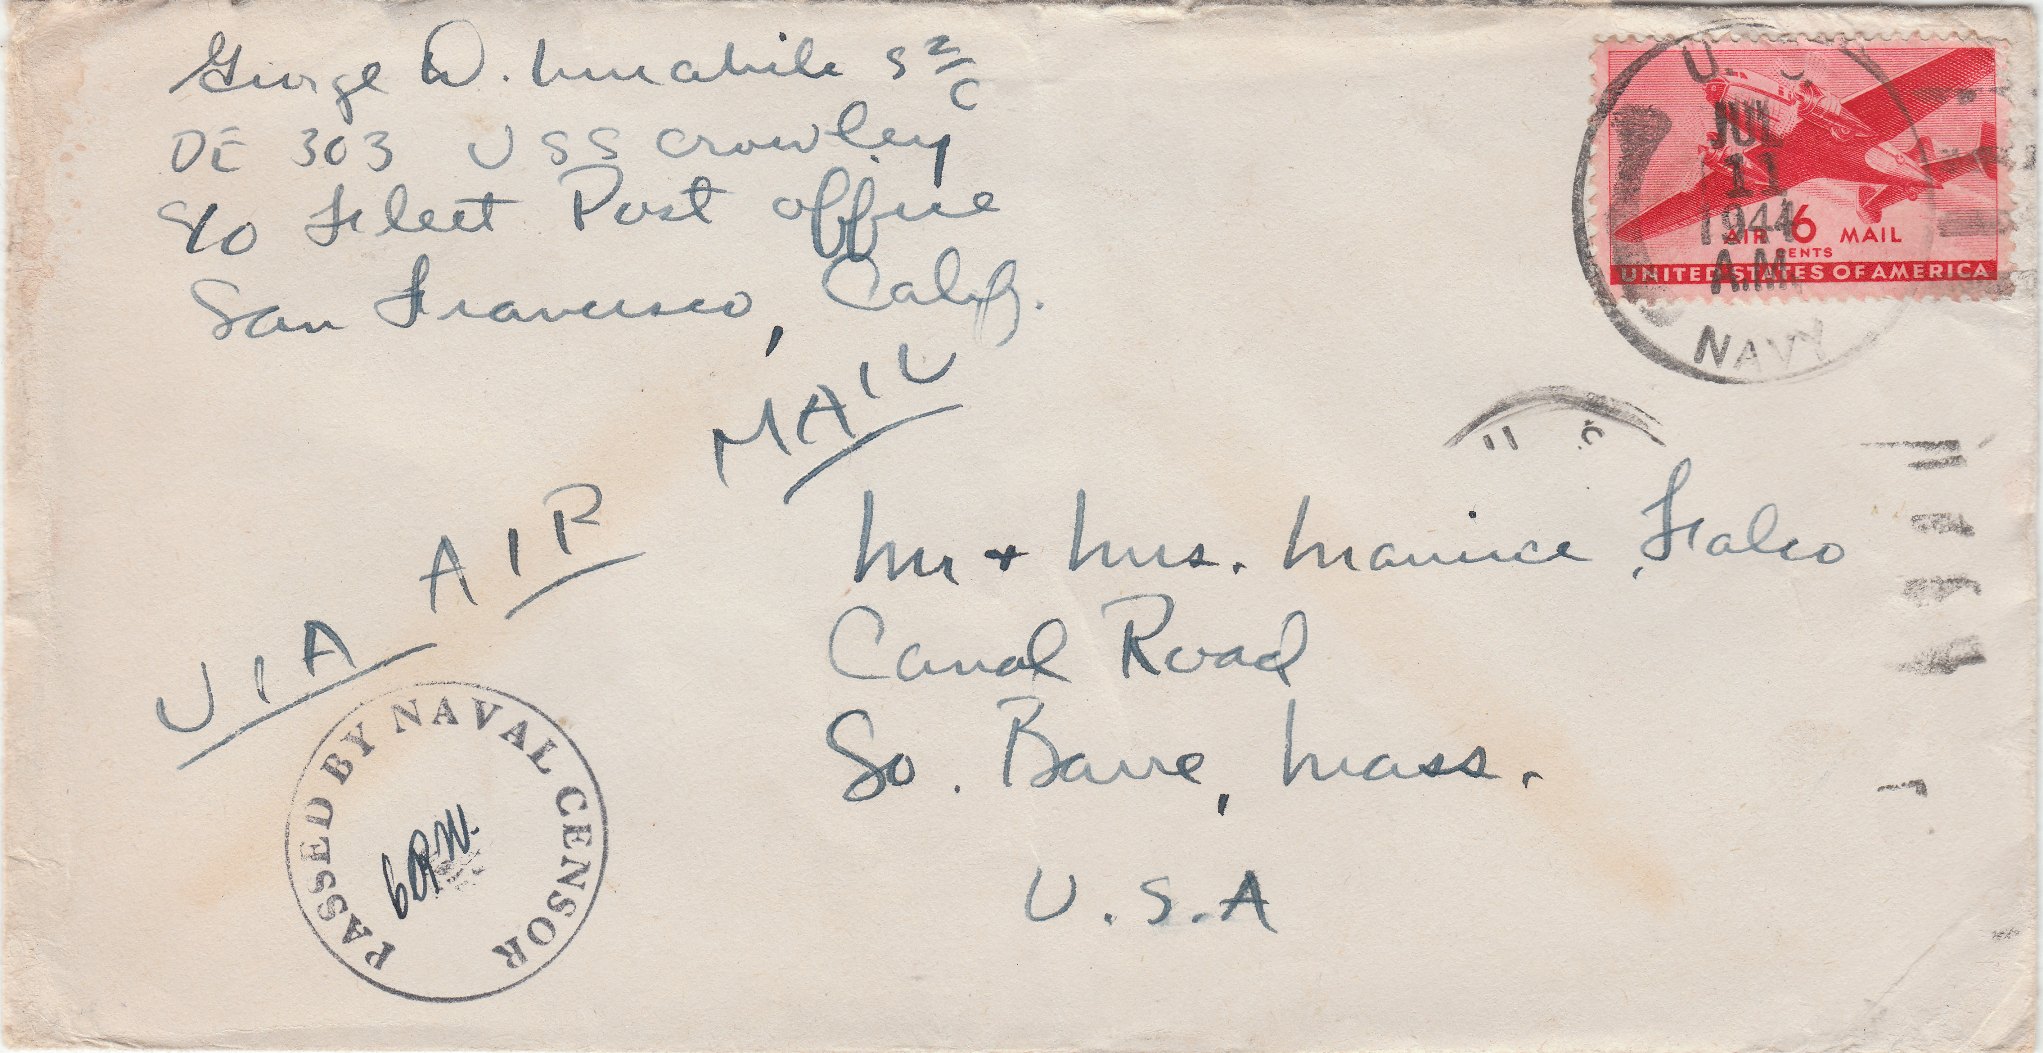 George D. Amabile S 2/c
DE 303 USS Crowley
c/o Fleet Post Office
San Francisco, Calif.
U. S.
JUL
11
1944
A.M.
NAVY
AIR 6 MAIL
CENTS
UNITED STATES OF AMERICA
VIA AIR MAIL
U S
Mr + Mrs. Maurice Falco
Canal Road
So. Barre, Mass.
U.S.A
PASSED BY NAVAL CENSOR